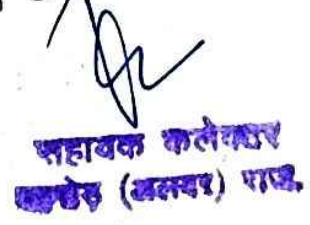 सहायक कलेक्टर
(अलवर) राज.